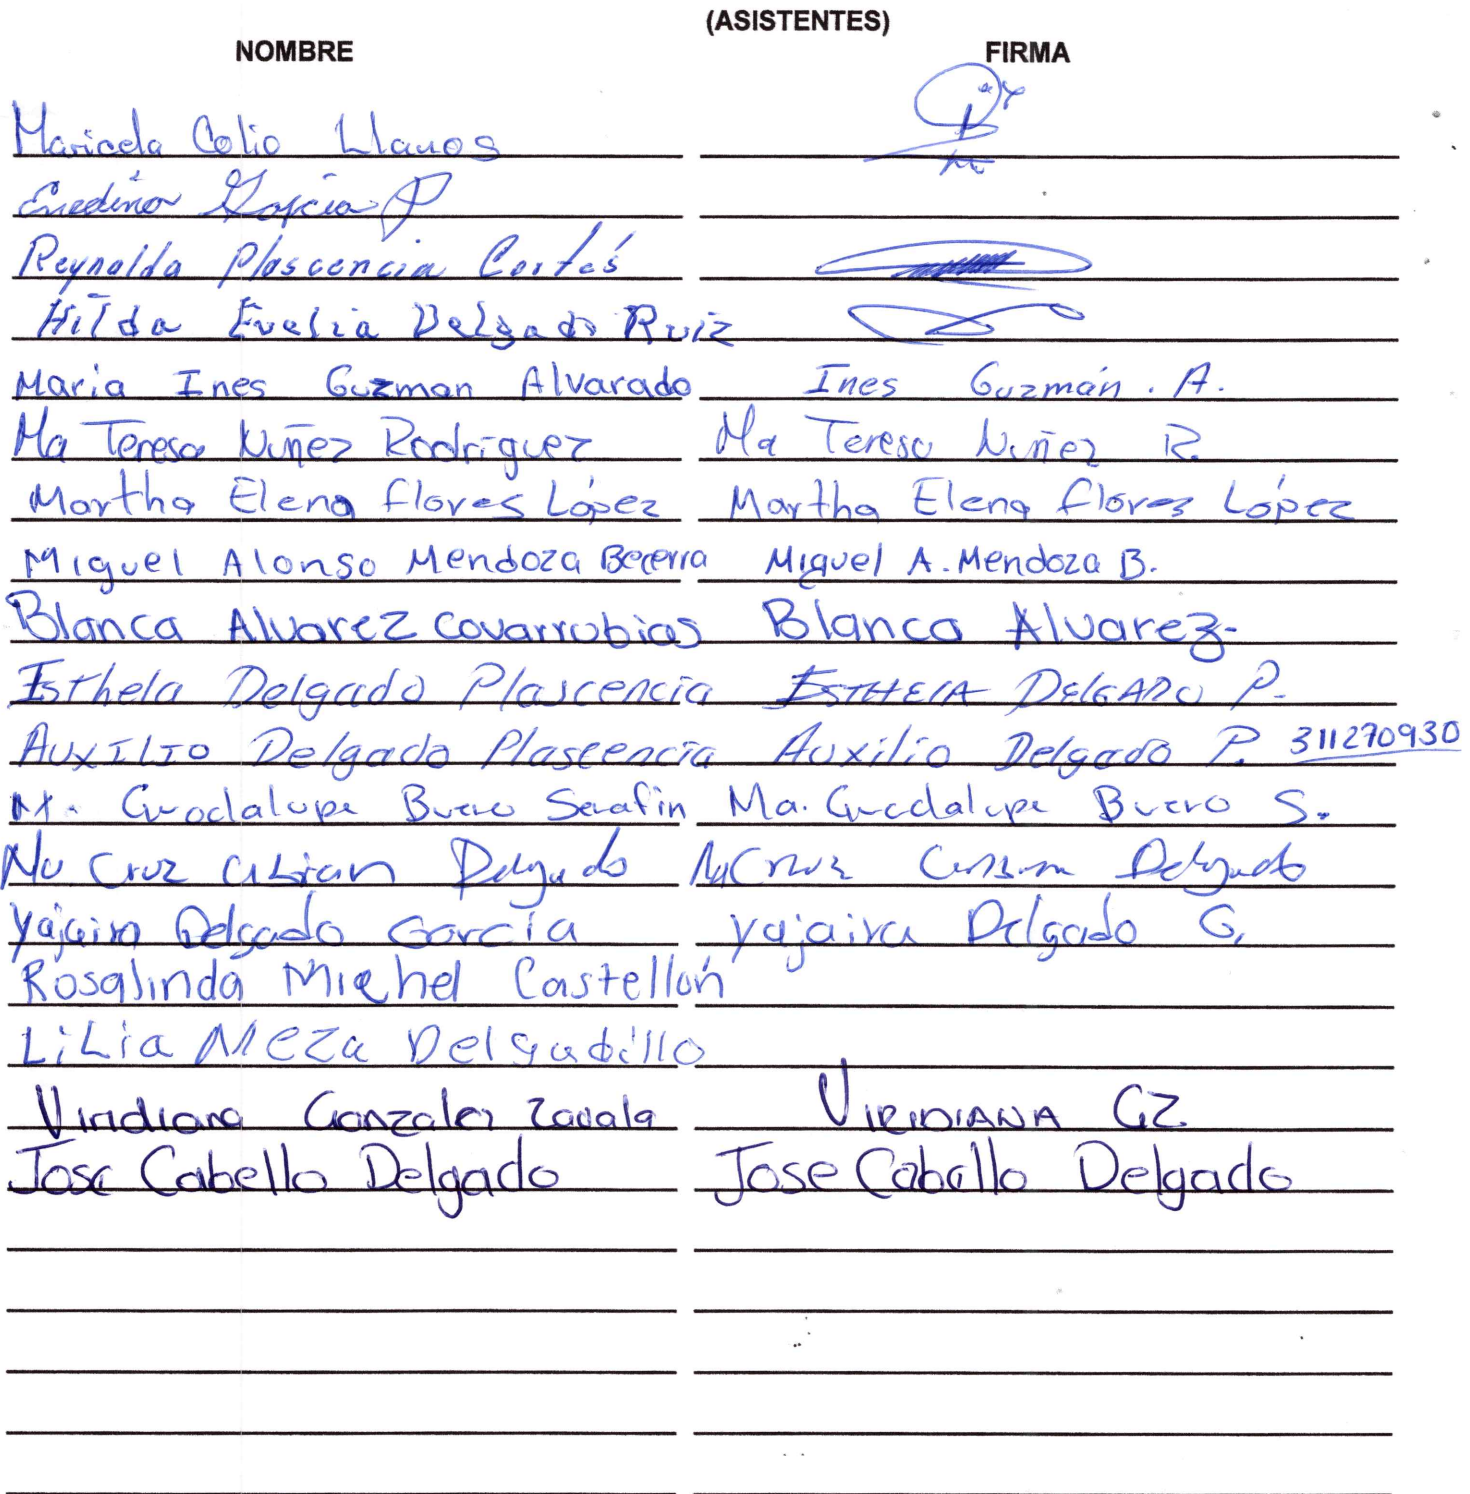 (ASISTENTES)
NOMBRE FIRMA
Maricela Colio Llanos
Enedina García P
Reynalda Plascencia Cortés
Hilda Evelia Delgado Ruiz
Maria Ines Guzman Alvarado Ines Guzmán. A.
Ma Teresa Nuñez Rodríguez Ma Teresa Nuñez R.
Martha Elena flores López Martha Elena flores López
Miguel Alonso Mendoza Becerra Miguel A. Mendoza B.
Blanca Alvarez covarrubias Blanca Alvarez-
Esthela Delgado Plascencia ESTHELA DELGADO P.
AUXILIO Delgado Plascencia Auxilio Delgado P. 311270930
M. Guadalupe Serafin Ma. Guadalupe S.
Cruz Delgado Cruz Delgado
Yajaira Delgado García yajaira Delgado G.
Rosalinda Michel Castellón
LiLia Meza Delgadillo
Viridiana Gonzalez Zavala VIRIDIANA GZ
Jose Cabello Delgado Jose Cabello Delgado